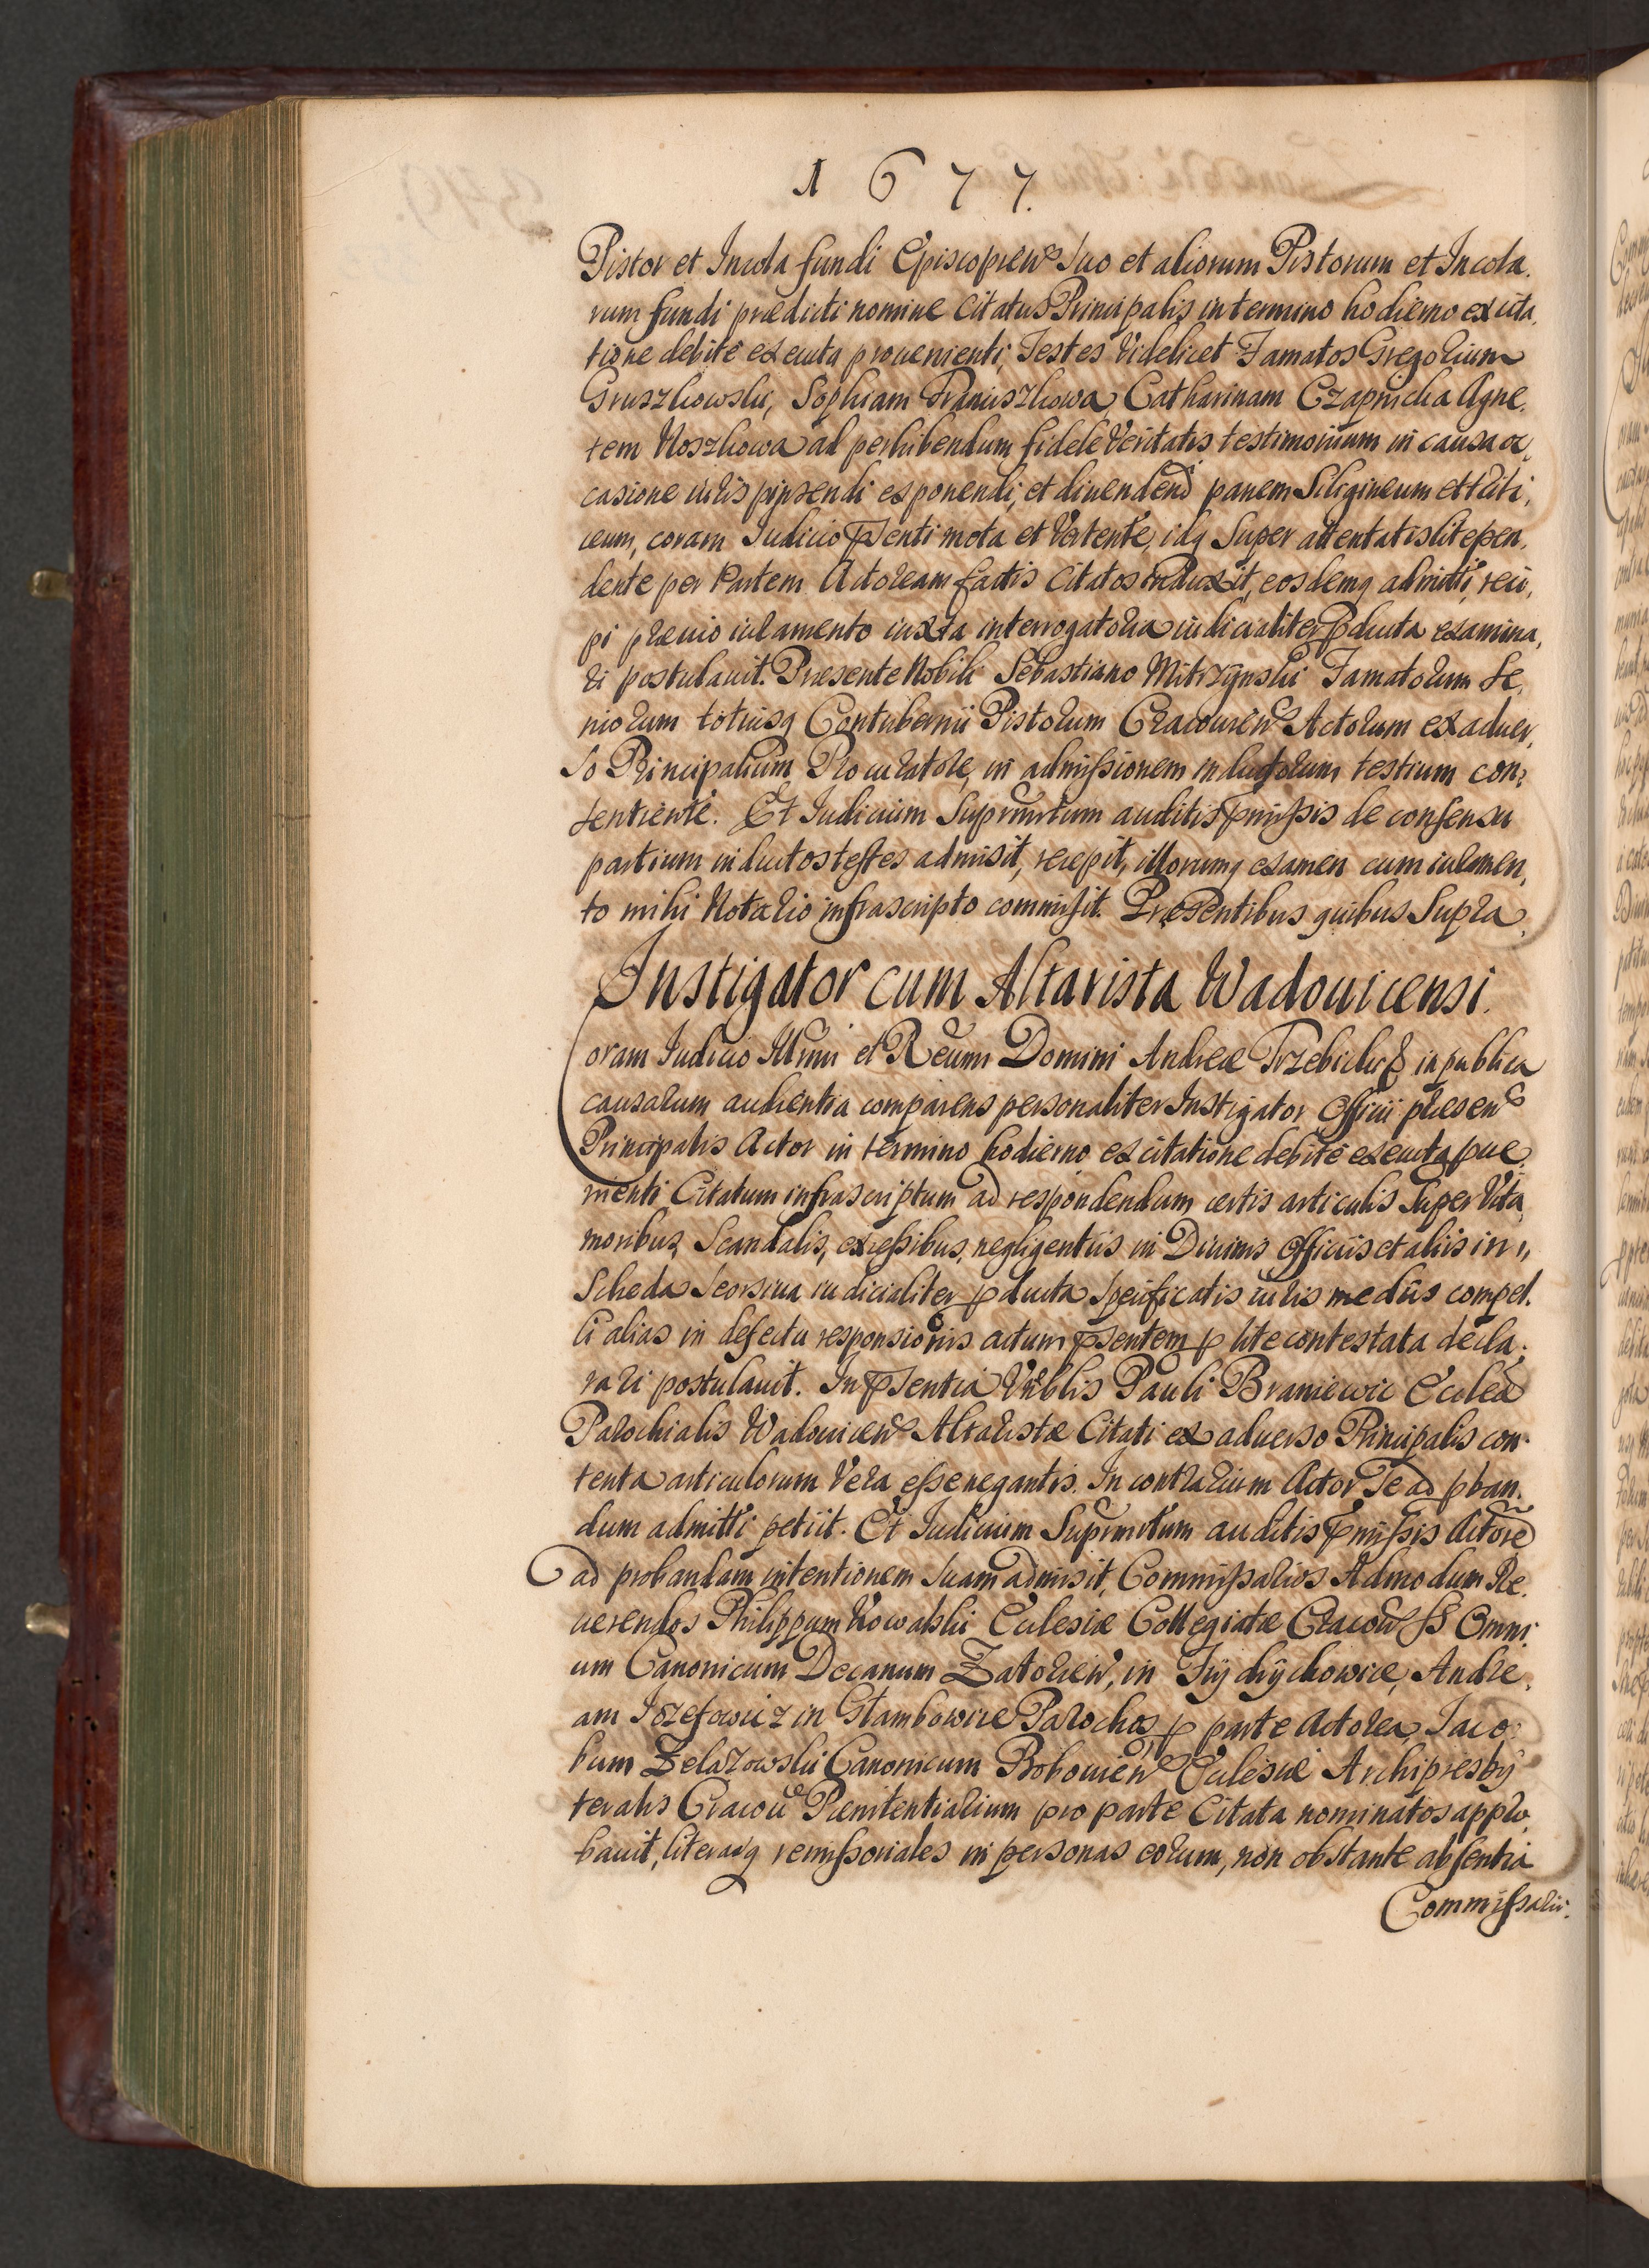 1677.
Pistor et Incola fundi Episcopien Suo et aliorum Pistorum et Incola,
rum fundi prædicti nomine Citatus Principalis in termino hodierno ex cita,
tione debite executa provenienti, Testes videlicet Famatos Gregorium
Gruszkowski, Sophiam Franciszkowa, Catharinam Czapnicka Agne,
tem Noszkowa ad perhibendum fidele Veritatis testimonium in causa oc,
casione iuris pinsendi exponendi, et divendend panem Siligineum et triti,
ceum, coram Iudicio psenti mota et Vertente, idq Super attentatis lite pen,
dente per Partem Actoream factis Citatos induxit, eosdemq admitti, reci,
pi prævio iuramento iuxta interrogatoria iudicialiter pducta examina,
ri postulavit. Presente Nobili Sebastiano Mitrzynski Famatorum Se,
niorum totiusq Contubernii Pistorum Cracovien Actorum ex adver,
so Principalium Procuratore, in admissionem inductorum testium con,
sentiente. Et Iudicium Suprmrtum auditis pmissis de consensu
partium inductos testes admisit, recepit, illorumq examen cum iuramen,
to mihi Notario infrascripto commisit. Presentibus quibus Supra,
Instigator cum Altarista Wadovicensi.
Coram Iudicio Illmi et Reumi Domini Andreæ Trzebicki in publica
causarum audientia comparens personaliter Instigator Officii presen
Principalis Actor in termino hodierno ex citatione debite executa pve
nienti Citatum infrascriptum ad respondendum certis articulis Super Vita,
moribus, Scandalis, excessibus, negligentiis in Divinis Officiis et aliis in,
Scheda Seorsiva iudicialiter pducta Specificatis iuris mediis compel.
li alias in defectu responsionis actum psentem p lite contestata decla,
rari postulavit. In psentia Vnblis Pauli Braniewic Eccleæ
Parochialis Wadovicen Altaristæ Citati ex adverso Principalis con
tenta articulorum Vera esse negantis. In contrarium Actor Se ad pban,
dum admitti petiit. Et Iudicium Suprmrtum auditis pmissis Actore
ad probandam intentionem Suam admisit, Commissarios Admodum Re,
verendos Philippum Kowalski Eclesiæ Collegiatæ Cracov SS Omni
um Canonicum Decanum Zatorien, in Frydrychowice, Andre,
am Iozefowicz in Głambowice Parochos, p parte Actorea, Iaco
bum Zelazowski Canonicum Bobovien Eclesiæ Archipresby
teralis Cracov Pænitentiarium pro parte Citata nominatos appro,
bavit, literasq remissoriales in personas eorum, non obstante absentia
Commissarii.